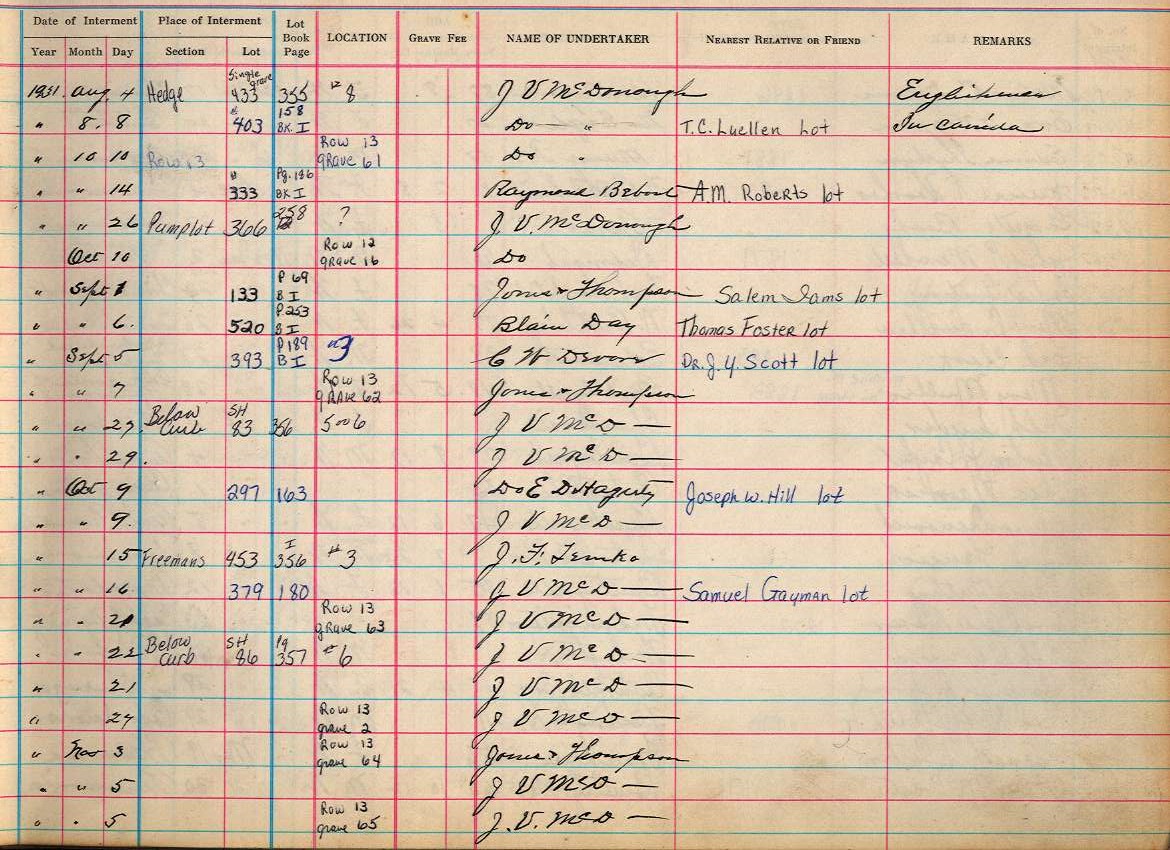 Date of Interment Place of Interment Lot Book Page LOCATION GRAVE FEE NAME OF UNDERTAKER NEAREST RELATIVE OR FRIEND REMARKS
Year Month Day Section Lot
1931. Aug 4 Hedge Single grave 433 355 # 8 J V McDonough Englishman
" 8. 8 # 403 158 BK. I Do " T.C. Luellen Lot In Canada
" 10 10 Row 13 Row 13 grave 61 Do "
" " 14 # 333 Pg. 186 BK I Raymond A.M. Roberts lot
" " 26 Pumplot 366 258 ? J. V. McDonough
Oct 10 Row 12 grave 16 Do
" Sept 1 133 P 69 B I Jones & Thompson Salem Iams lot
" " 6. 520 P253 B I Blair Day Thomas Foster lot
" Sept 5 393 P189 B I "3 C W Devore Dr. J. Y. Scott lot
" " 7 Row 13 grave 62 Jones & Thompson
" " 27. Below Curb SH 83 356 5 or 6 J V McD —
" " 29. J V McD —
" Oct 9 297 163 Do E D Hagerty Joseph W. Hill lot
" " 9. J V McD —
" 15 Freemans 453 I 356 # 3 J. F. Lemka
" " 16 379 180 J V McD — Samuel Gayman lot
" " 21 Row 13 grave 63 J V McD —
" " 22 Below Curb SH 86 Pg 357 # 6 J V McD —
" 21 J V McD —
" 27 Row 13 grave 2 J V McD —
" Nov 3 Row 13 grave 64 Jones & Thompson
" " 5 J V McD —
" " 5 Row 13 grave 65 J. V. McD —